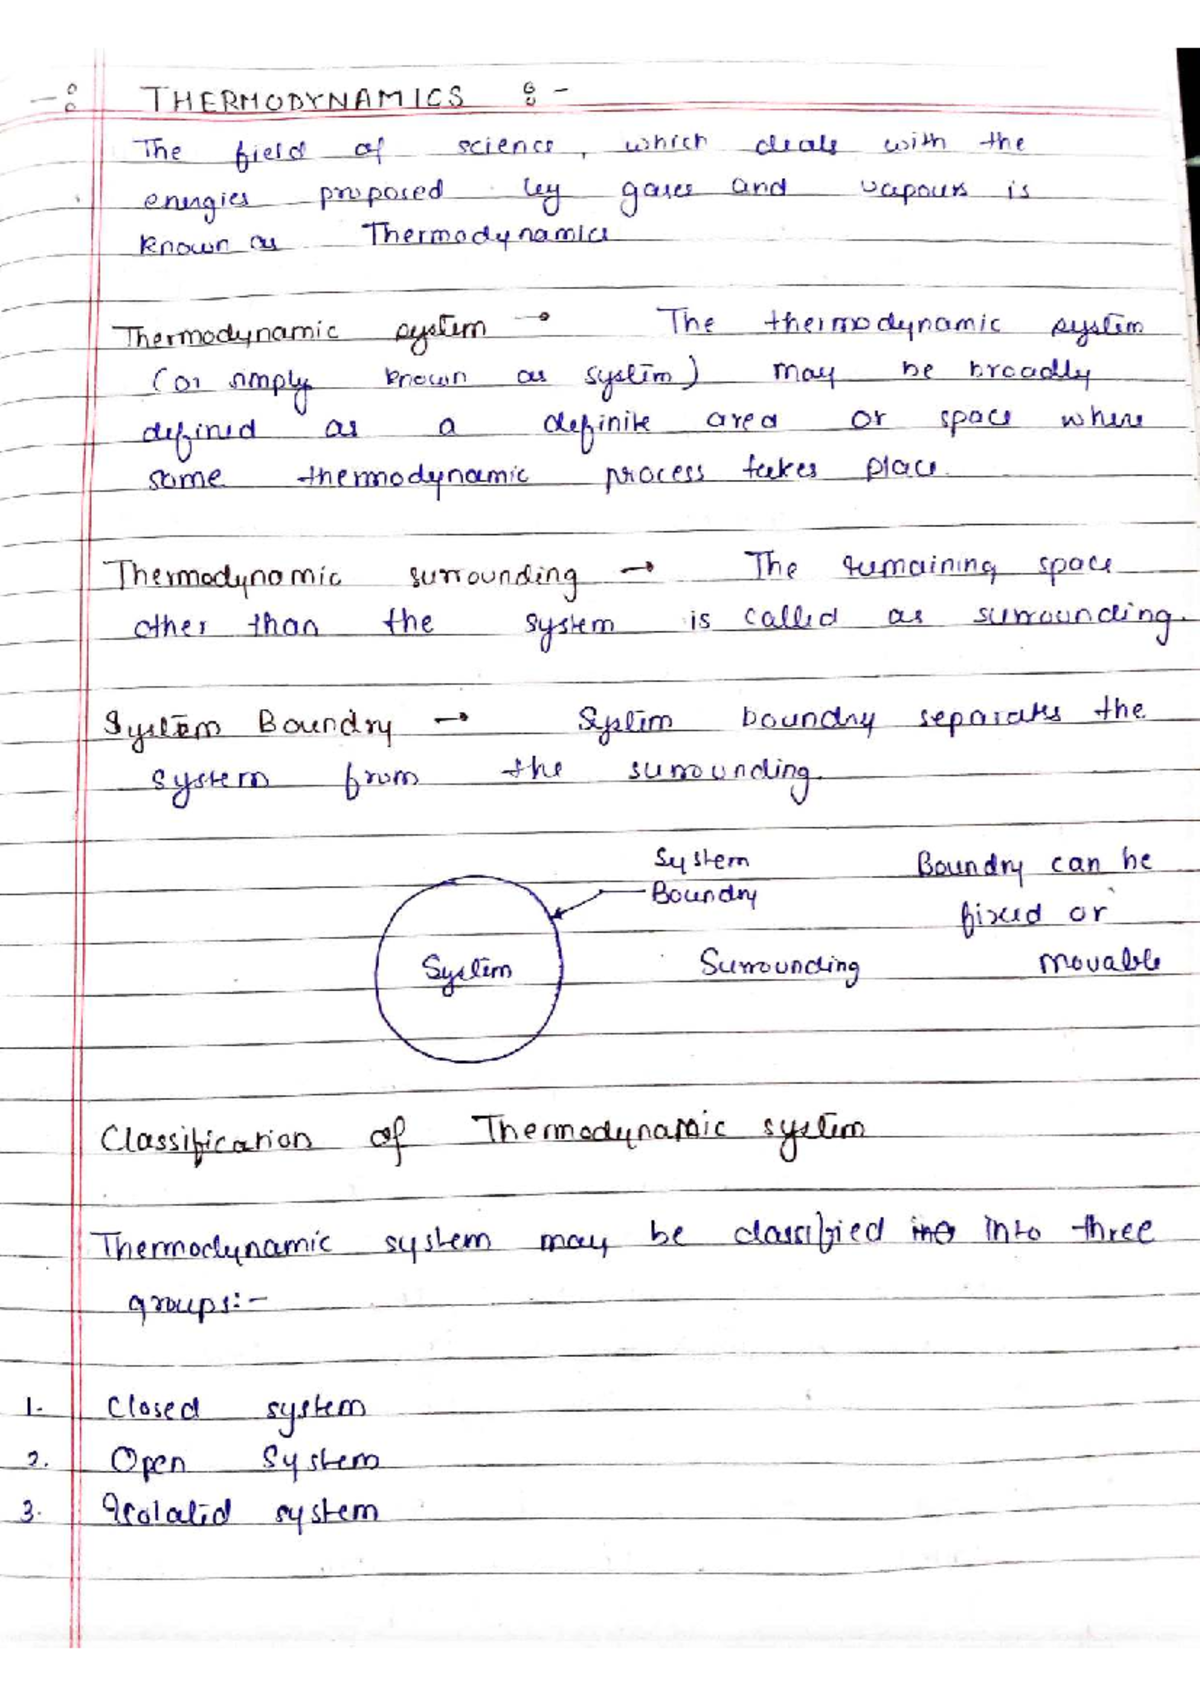 -: THERMODYNAMICS :-
The field of science, which deals with the
energies proposed by gases and vapours is
known as Thermodynamics
Thermodynamic system → The thermodynamic system
(or simply known as system) may be broadly
defined as a definite area or space where
some thermodynamic process takes place.
Thermodynamic surrounding → The remaining space
other than the system is called as surrounding.
System Boundry → System boundry separates the
system from the surrounding.
System
Boundry
Boundry can be
fixed or
movable
System
Surrounding
Classification of Thermodynamic system
Thermodynamic system may be classified into three
groups:-
1. Closed system
2. Open System
3. Isolated system